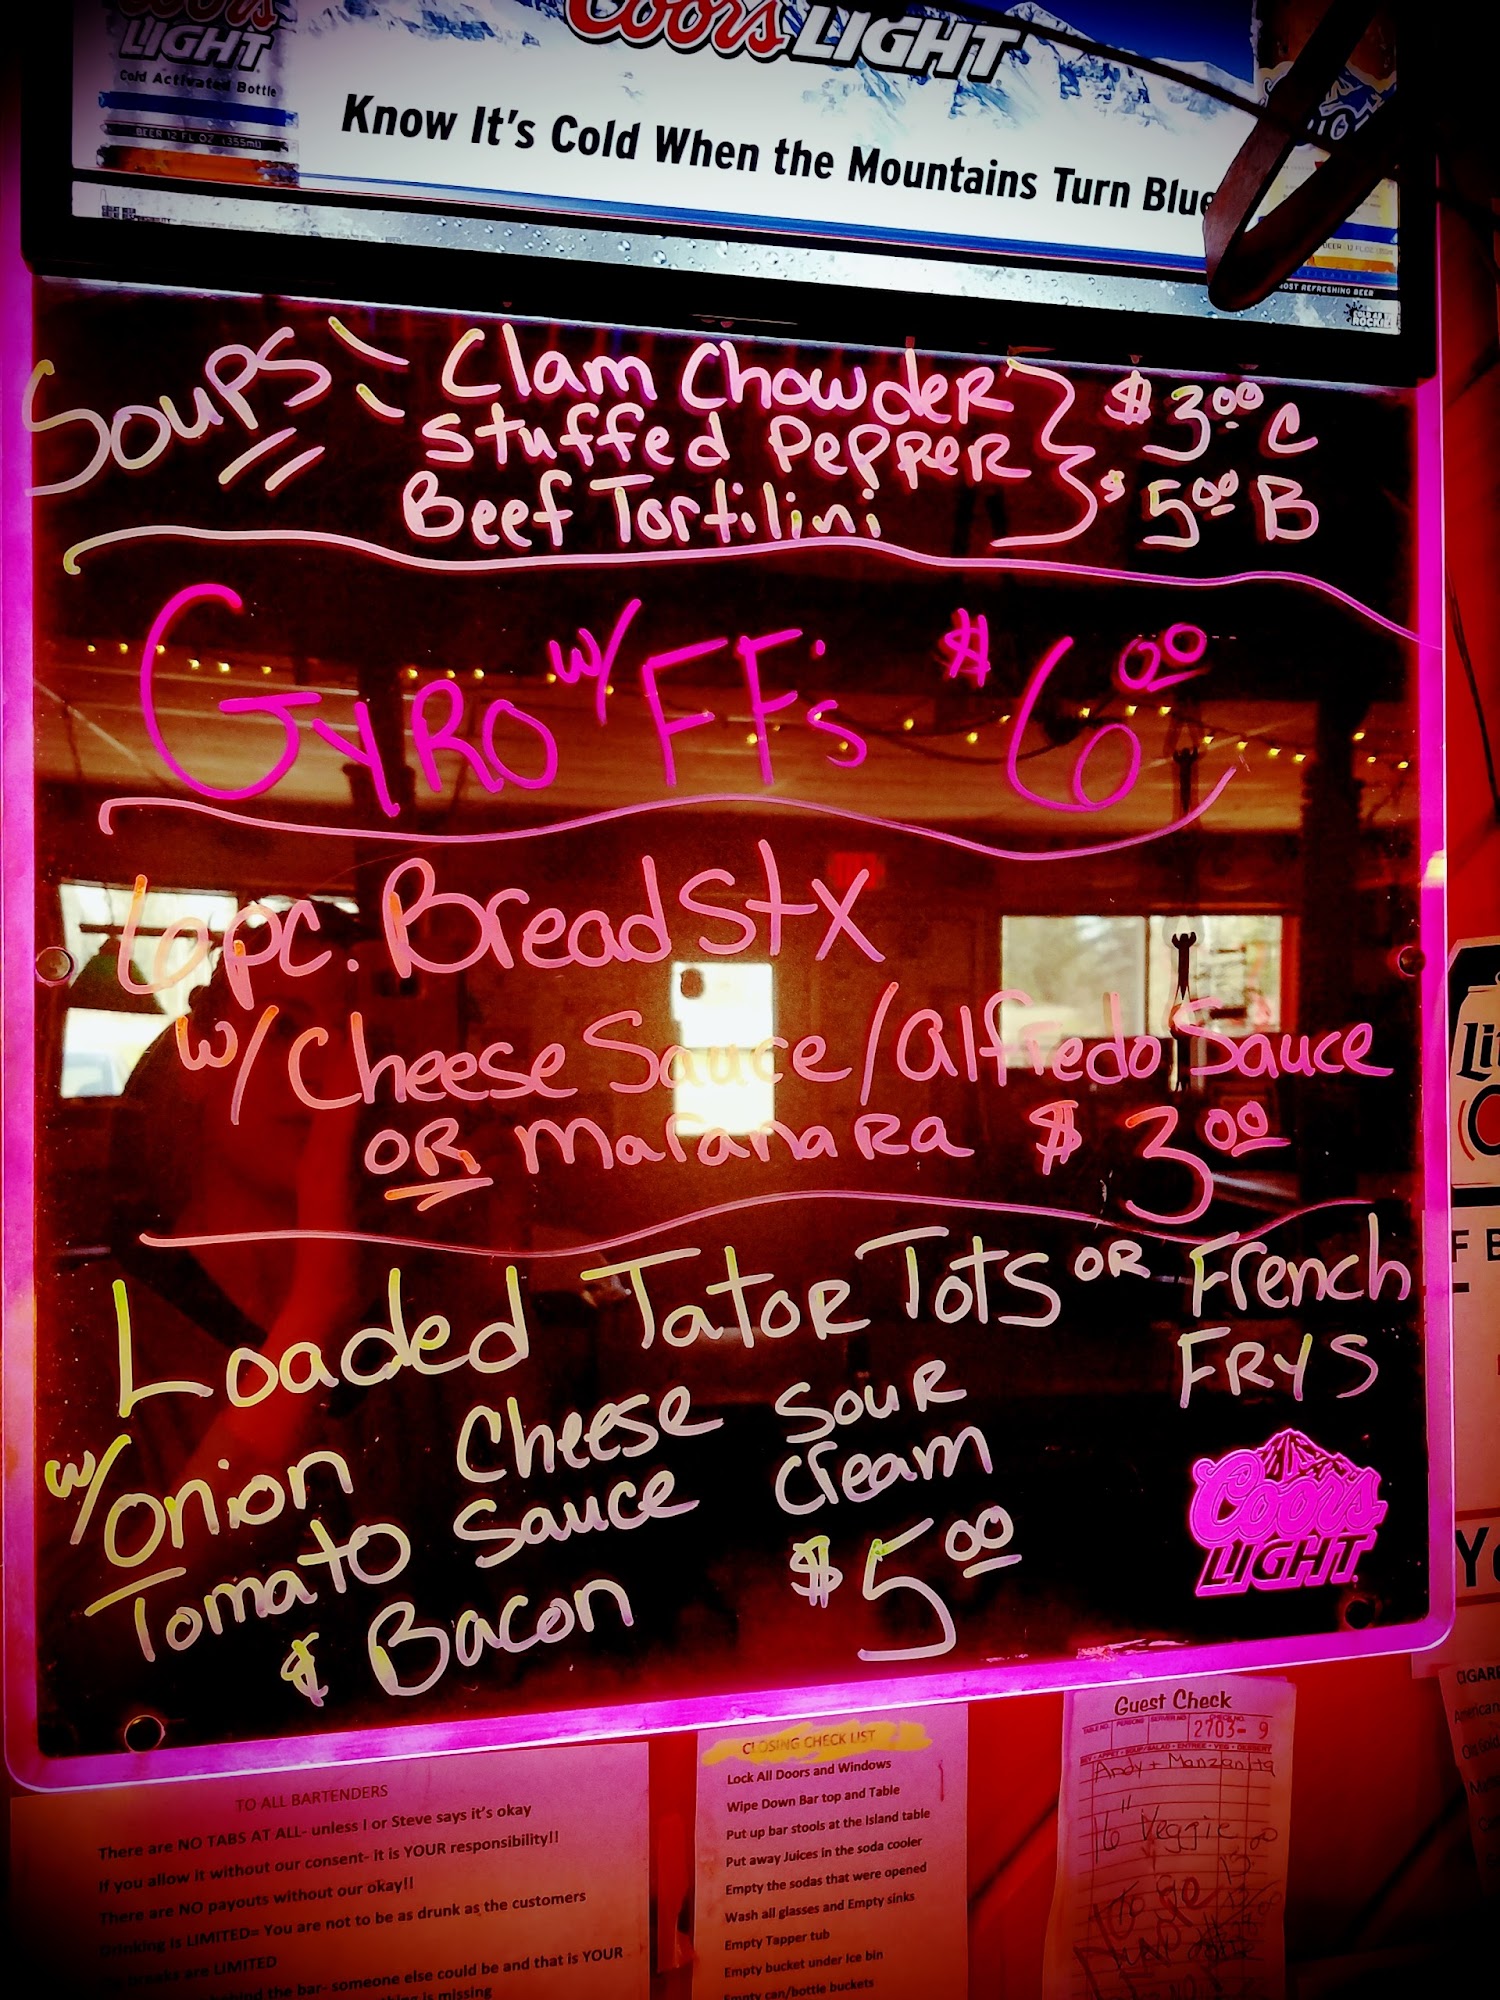 Coors LIGHT
Coors LIGHT
Cold Activated Bottle
BEER 12 FL OZ (355ml)
Know It's Cold When the Mountains Turn Blue
MOST REFRESHING BEER
Soups: Clam Chowder $3.00 C
Stuffed Pepper
Beef Tortilini $5.00 B
Gyro w/ FF's $6.00
6pc. Breadstx
w/ Cheese Sauce/Alfredo Sauce
OR Maranara $3.00
Loaded Tator Tots OR French
FRYS
w/ Onion Cheese Sour
Tomato Sauce Cream
& Bacon $5.00
Coors
LIGHT
TO ALL BARTENDERS
There are NO TABS AT ALL- unless I or Steve says it's okay
If you allow it without our consent- it is YOUR responsibility!!
There are NO payouts without our okay!!
Drinking is LIMITED= You are not to be as drunk as the customers
breaks are LIMITED
behind the bar- someone else could be and that is YOUR
is missing
CLOSING CHECK LIST
Lock All Doors and Windows
Wipe Down Bar top and Table
Put up bar stools at the island table
Put away Juices in the soda cooler
Empty the sodas that were opened
Wash all glasses and Empty sinks
Empty Tapper tub
Empty bucket under ice bin
Empty can/bottle buckets
Guest Check
2703- 9
Andy + Manzanita
16" Veggie
Lit
CIGAR
American
Old Gold